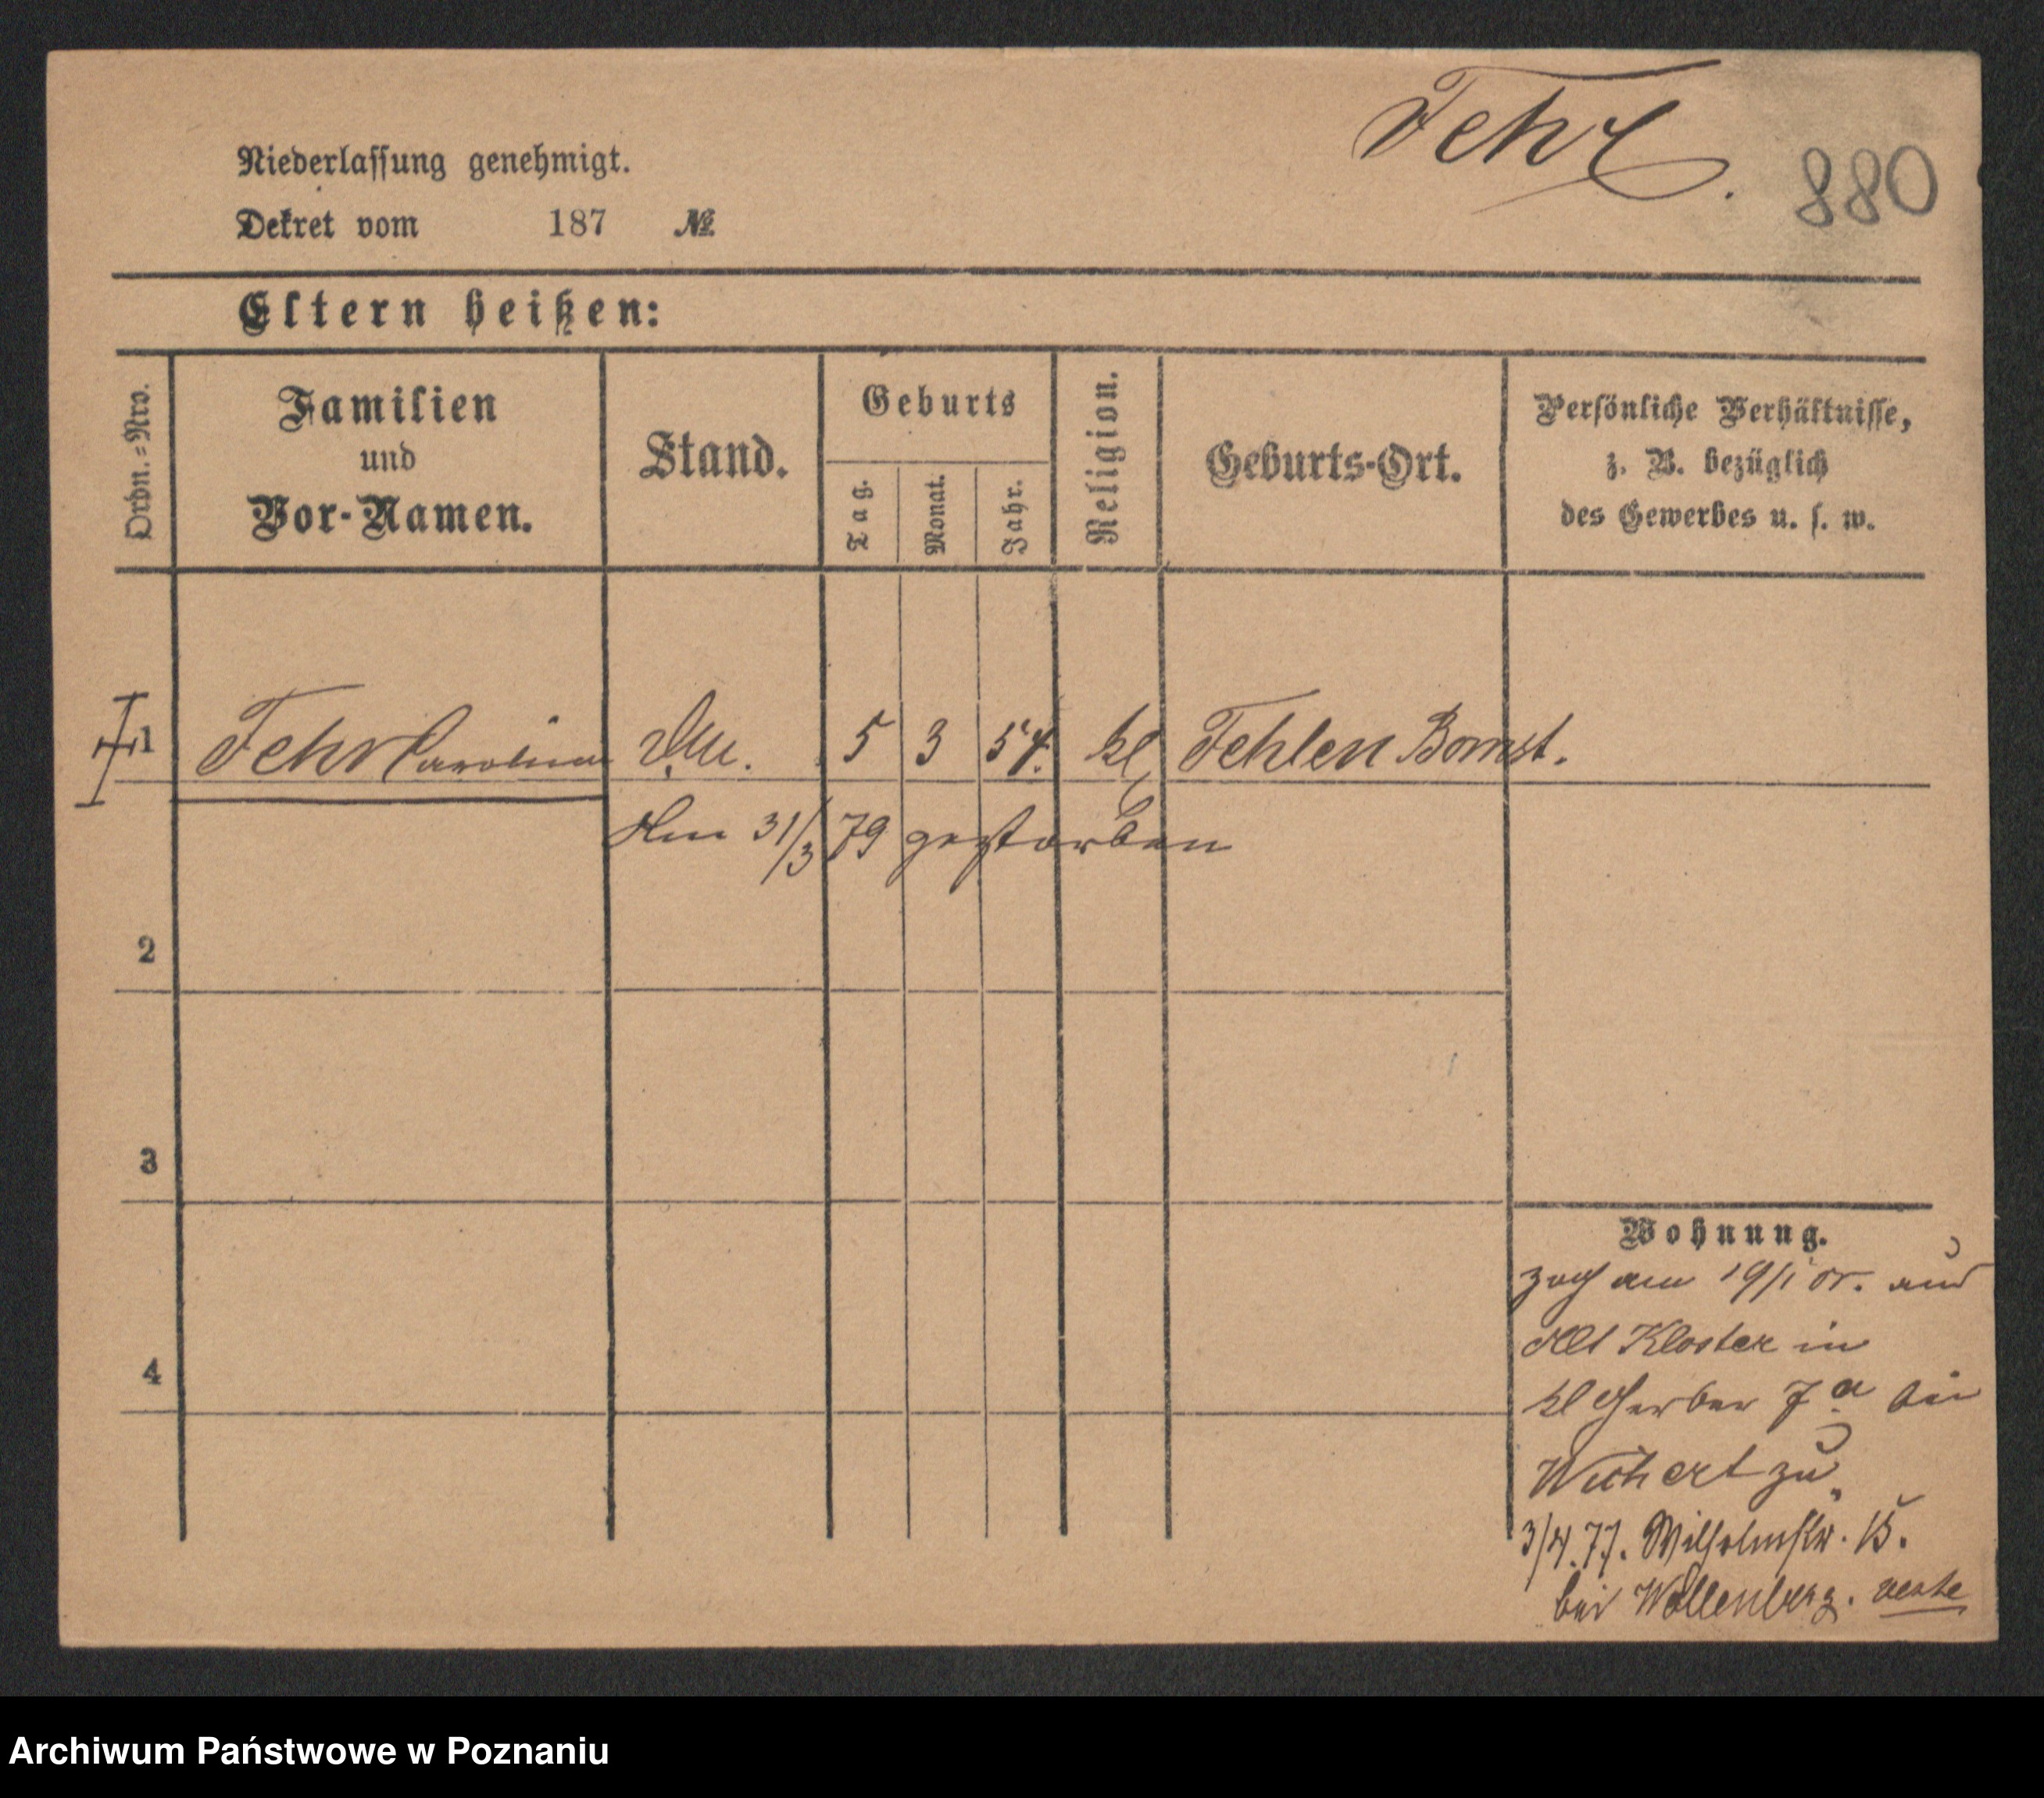 Fehr.
880
Niederlassung genehmigt.
Dekret vom 187 №
Eltern heißen:
Ordn.=Nro.
Familien
und
Vor-Namen.
Stand.
Geburts
Tag.
Monat.
Jahr.
Religion.
Geburts-Ort.
Persönliche Verhältnisse,
z. B. bezüglich
des Gewerbes u. s. w.
1 Fehr Carolina 5 3 54. kl Fehlen Bomst.
Am 31/3 79 gestorben
2
3
4
Wohnung.
zog am 19/1 aus
Alt Kloster in
kl Gerber 7a bei
Weihert zu
3/4.77. Wilhelmstr. 15.
bei Wollenberg.
Archiwum Państwowe w Poznaniu